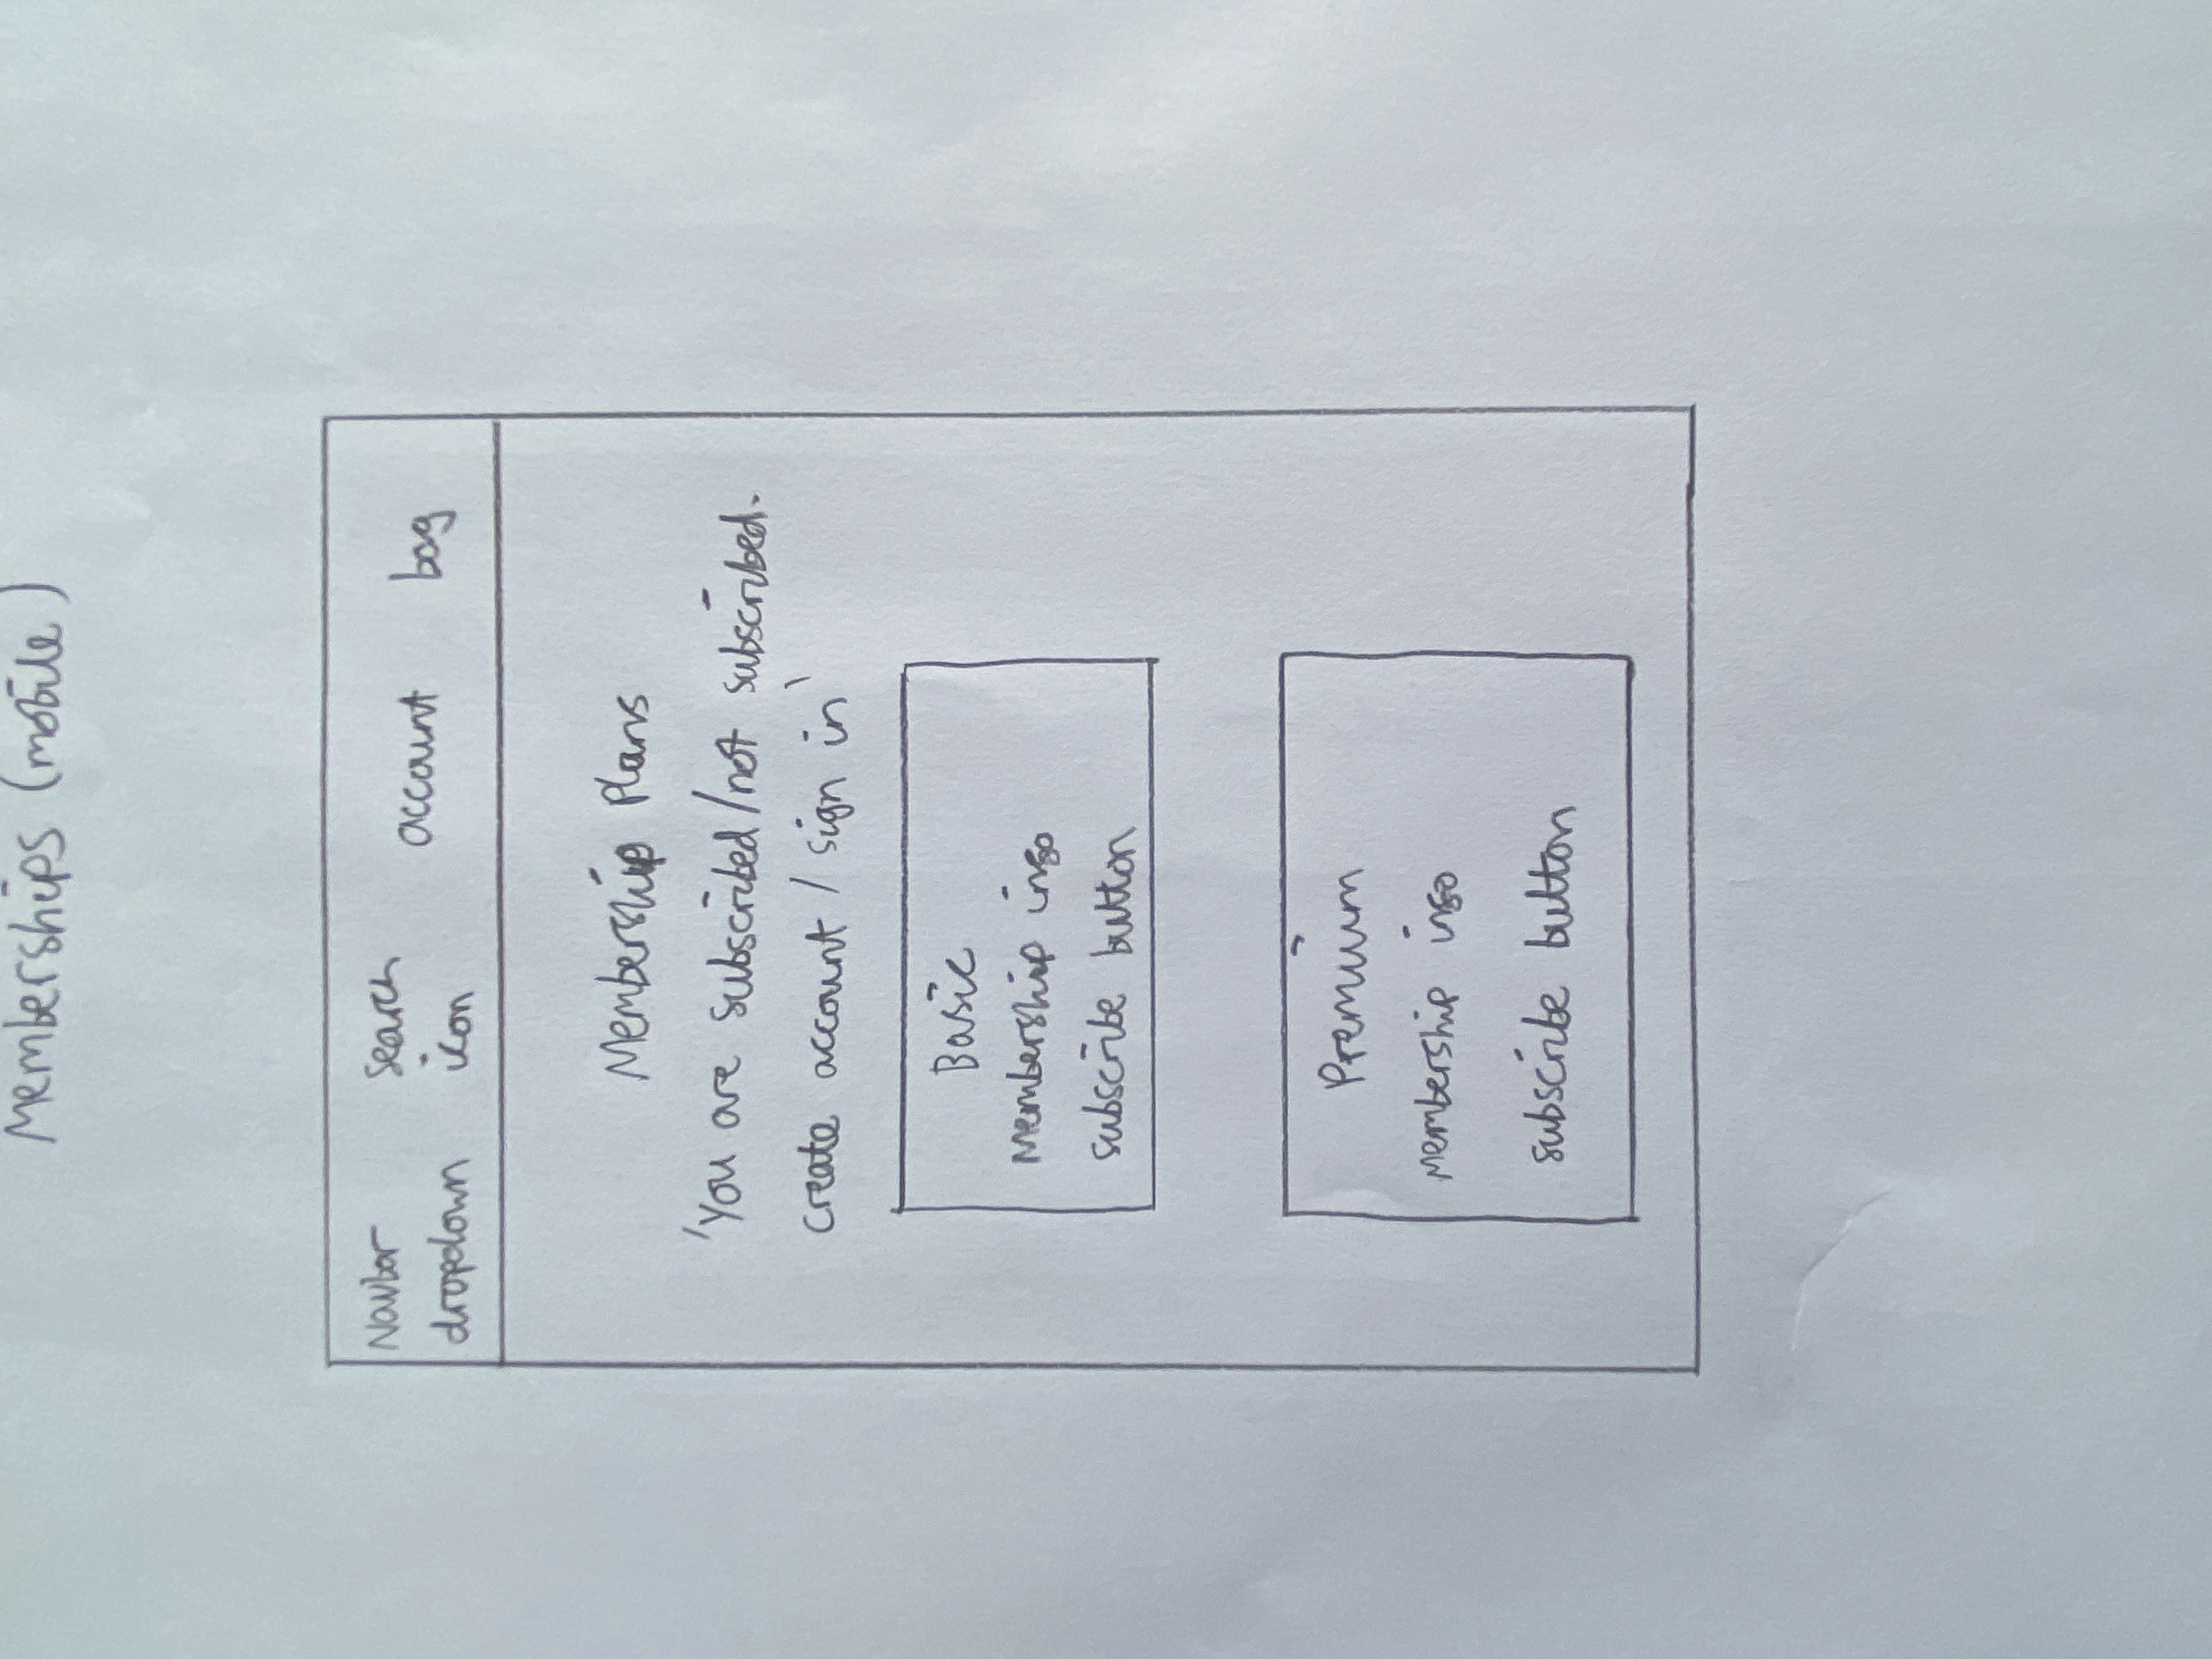 Memberships (mobile)
Navbar
dropdown
search
icon
account
bag
Membership Plans
'You are subscribed/not subscribed.
create account / sign in'
Basic
Membership info
subscribe button
Premium
Membership info
subscribe button